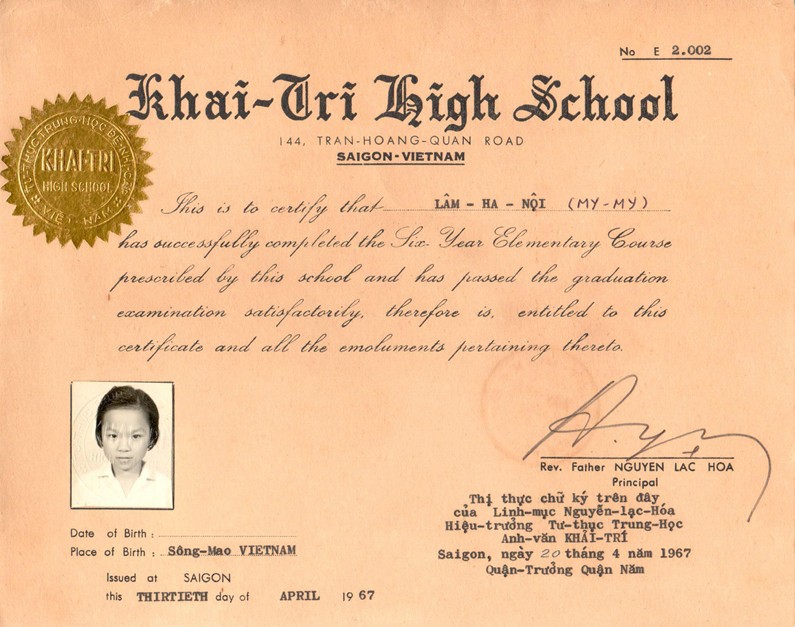 No E 2.002
Khai-Tri High School
144, TRAN-HOANG-QUAN ROAD
SAIGON-VIETNAM
KHAI-TRI
HIGH SCHOOL
VIỆT-NAM
This is to certify that LÂM - HA - NỘI (MY-MY)
has successfully completed the Six-Year Elementary Course
prescribed by this school and has passed the graduation
examination satisfactorily, therefore is, entitled to this
certificate and all the emoluments pertaining thereto.
Rev. Father NGUYEN LAC HOA
Principal
Thị thực chữ ký trên đây
của Linh-mục Nguyễn-lạc-Hóa
Hiệu-trưởng Tư-thục Trung-Học
Anh-văn KHẢI-TRÍ
Saigon, ngày 20 tháng 4 năm 1967
Quận-Trưởng Quận Năm
Date of Birth :
Place of Birth : Sông-Mao VIETNAM
Issued at SAIGON
this THIRTIETH day of APRIL 1967